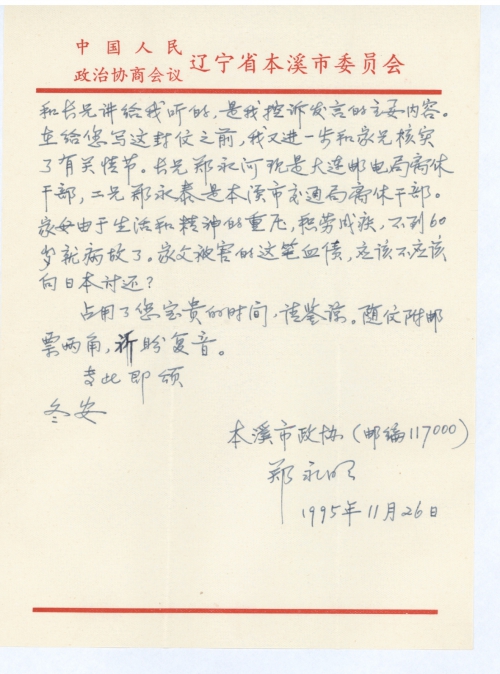 中国人民
政治协商会议 辽宁省本溪市委员会
和长兄讲给我听的，是我控诉发言的主要内容。
在给您写这封信之前，我又进一步和家兄核实
了有关情节。长兄郑永河现是大连邮电局离休
干部，二兄郑永泰是本溪市交通局离休干部。
家母由于生活和精神的重压，积劳成疾，不到60
岁就病故了。家父被害的这笔血债，应该不应该
向日本讨还？
占用了您宝贵的时间，请鉴谅。随信附邮
票两角，祈盼复音。
专此即颂
冬安
本溪市政协（邮编117000）
郑永明
1995年11月26日